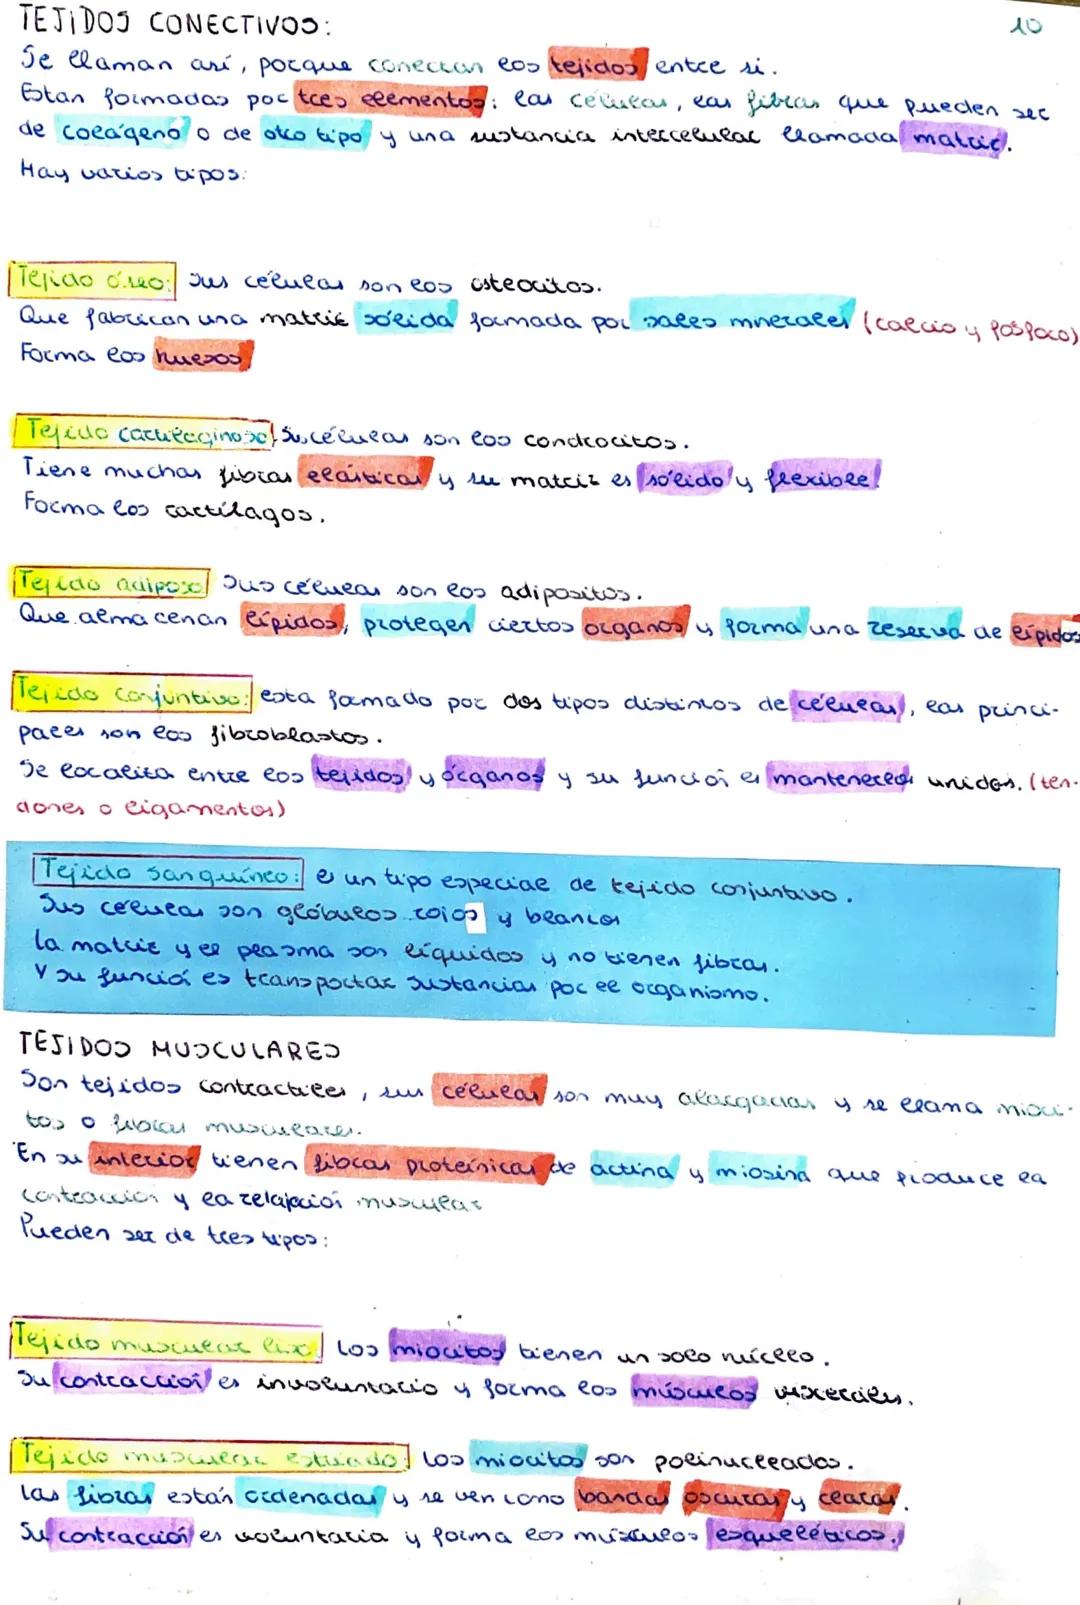 TEJIDOS CONECTIVOS:
10
Se llaman así, porque conectan los tejidos entre si.
Estan formadas por tres elementos: las células, las fibras que pueden ser
de colágeno o de otro tipo y una sustancia intercelular llamada matriz.
Hay varios tipos:
Tejido óseo: Sus células son los osteocitos.
Que fabrican una matriz sólida formada por sales mnerales (calcio y fósforo)
Forma los huesos
Tejido cartilaginoso: Sus células son los condrocitos.
Tiene muchas fibras elásticas y su matriz es sólido y flexible.
Forma los cartílagos.
Tejido adiposo Sus células son los adipositos.
Que almacenan lípidos, protegen ciertos organos y forma una reserva de lípidos
Tejido conjuntivo: esta formado por dos tipos distintos de células, las princi-
pales son los fibroblastos.
Se localiza entre los tejidos y órganos y su función es mantenerlos unidos. (ten-
dones o ligamentos)
Tejido sanguíneo: es un tipo especial de tejido conjuntivo.
Sus células son glóbulos rojos y blancos
La matriz y el plasma son líquidos y no tienen fibras.
Y su función es transportar sustancias por el organismo.
TEJIDOS MUSCULARES
Son tejidos contractiles, sus células son muy alargadas y se llama mioci-
tos o fibras musculares.
En su interior tienen fibras proteínicas de actina y miosina que produce la
contracción y la relajación muscular
Pueden ser de tres tipos:
Tejido muscular liso: Los miocitos tienen un solo núcleo.
Su contracción es involuntario y forma los músculos viscerales.
Tejido muscular estriado: Los miocitos son polinucleados.
Las fibras están ordenadas y se ven como bandas oscuras y claras.
Su contracción es voluntaria y forma los músculos esqueléticos.